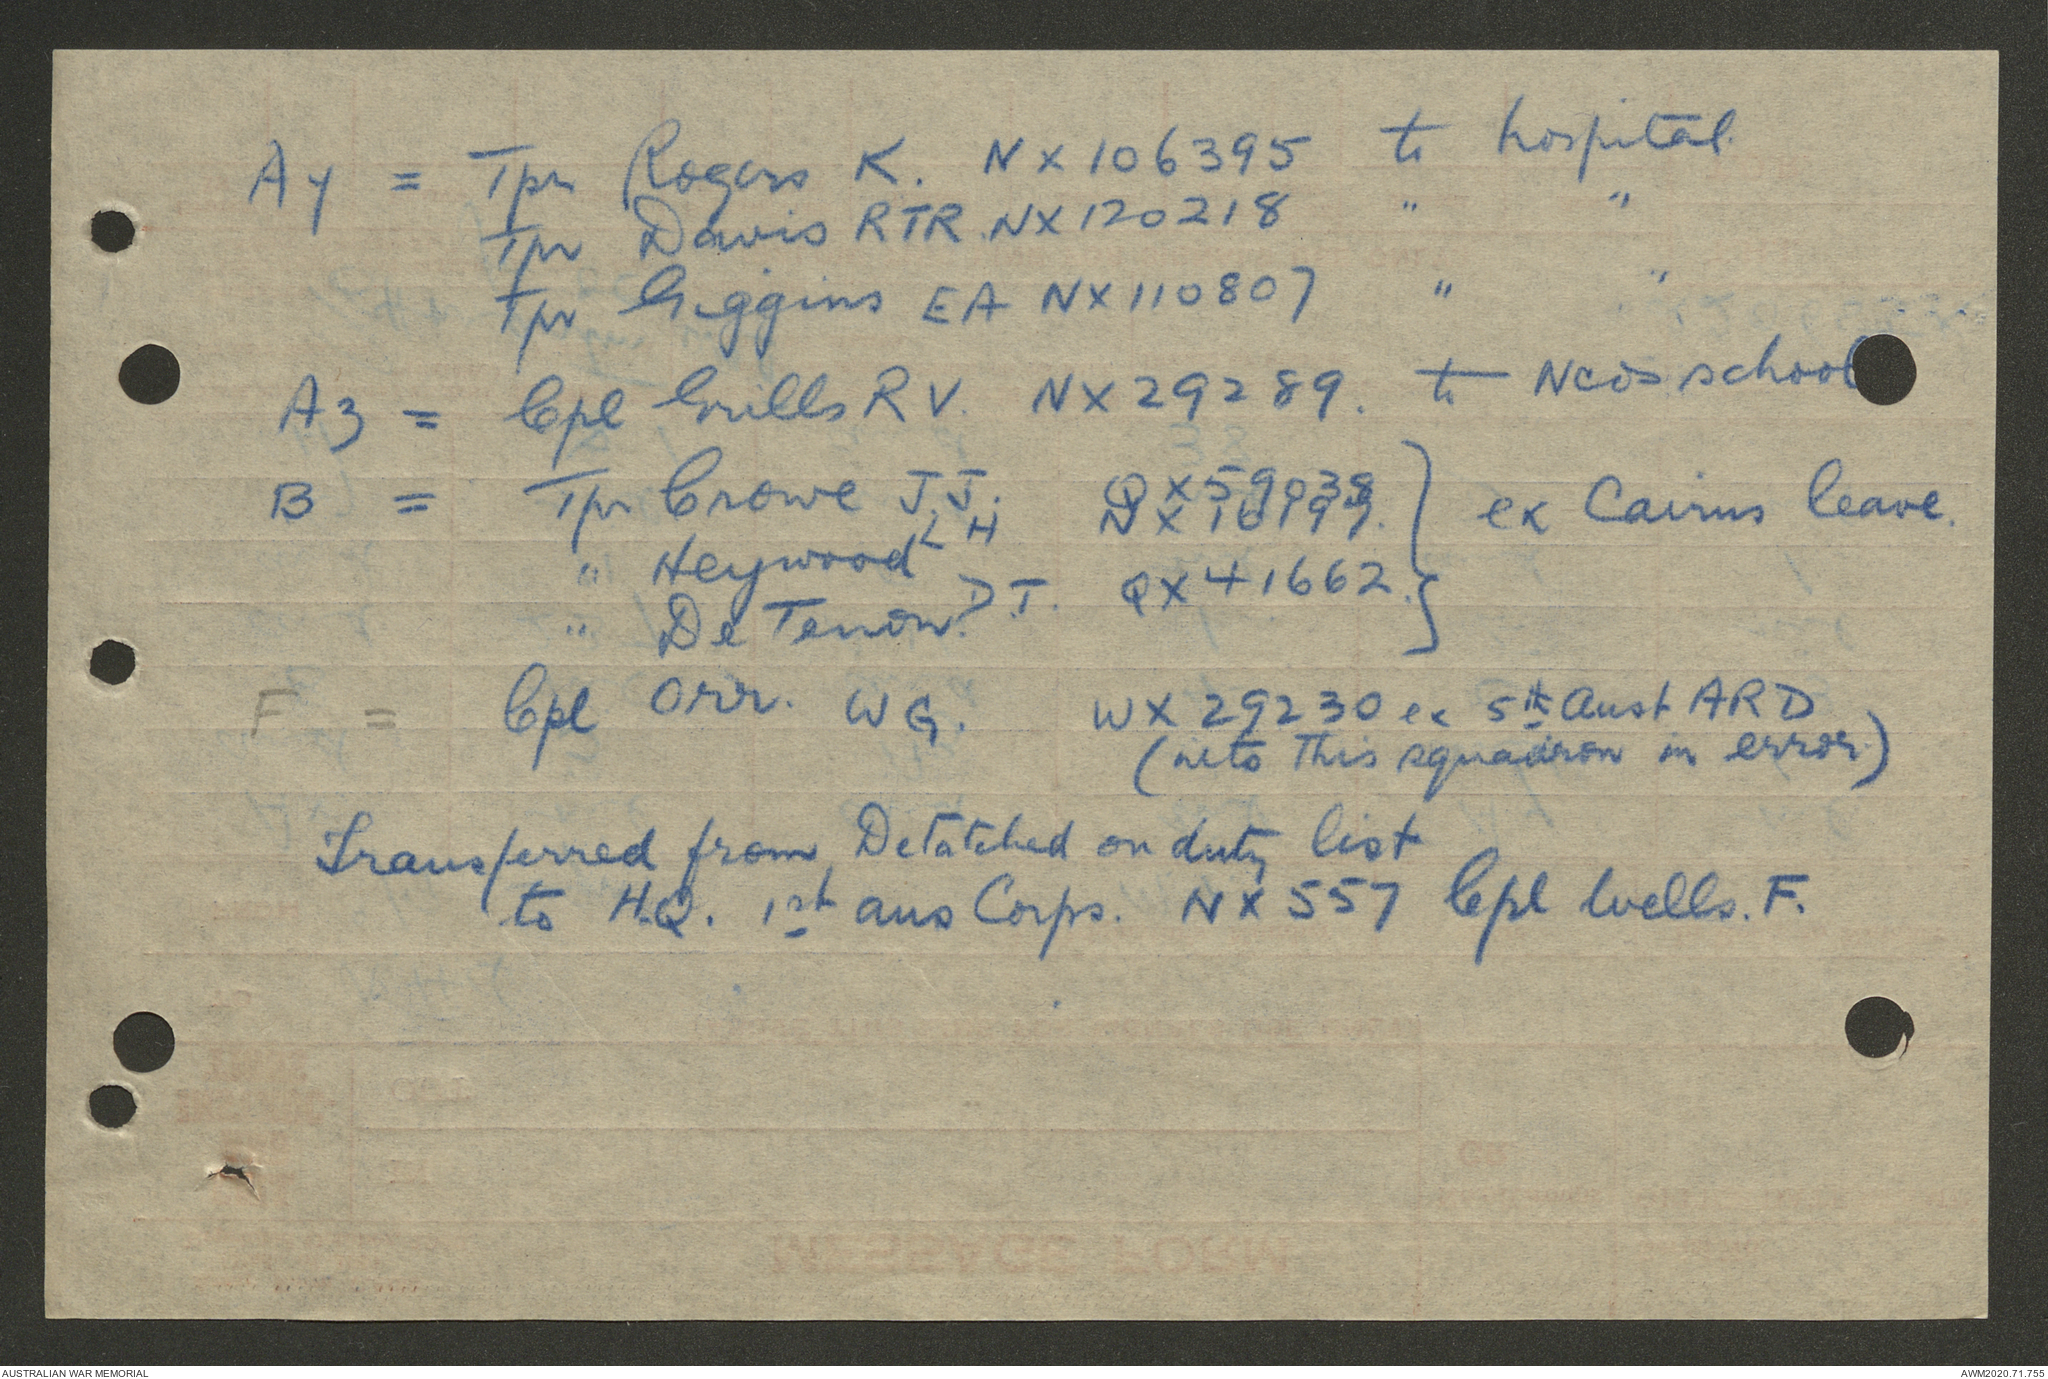 Ay = Tpr Rogers K. NX106395 to hospital.
Tpr Davis RTR. NX120218 " "
Tpr Giggins EA NX110807 " "
A3 = Cpl Grills RV. NX29289. to NCOs school
B = Tpr Crowe J.J. QX59038 } ex Cairns leave.
" Heywood LH
" De Tenon. D.T. QX41662.
F = Cpl Orr. WG. WX29230 ex 5th Aust ARD
( to This squadron in error)
Transferred from Detatched on duty list
to H.Q. 1st aus Corps. NX557 Cpl Wells. F.
MESSAGE FORM
AUSTRALIAN WAR MEMORIAL
AWM2020.71.755